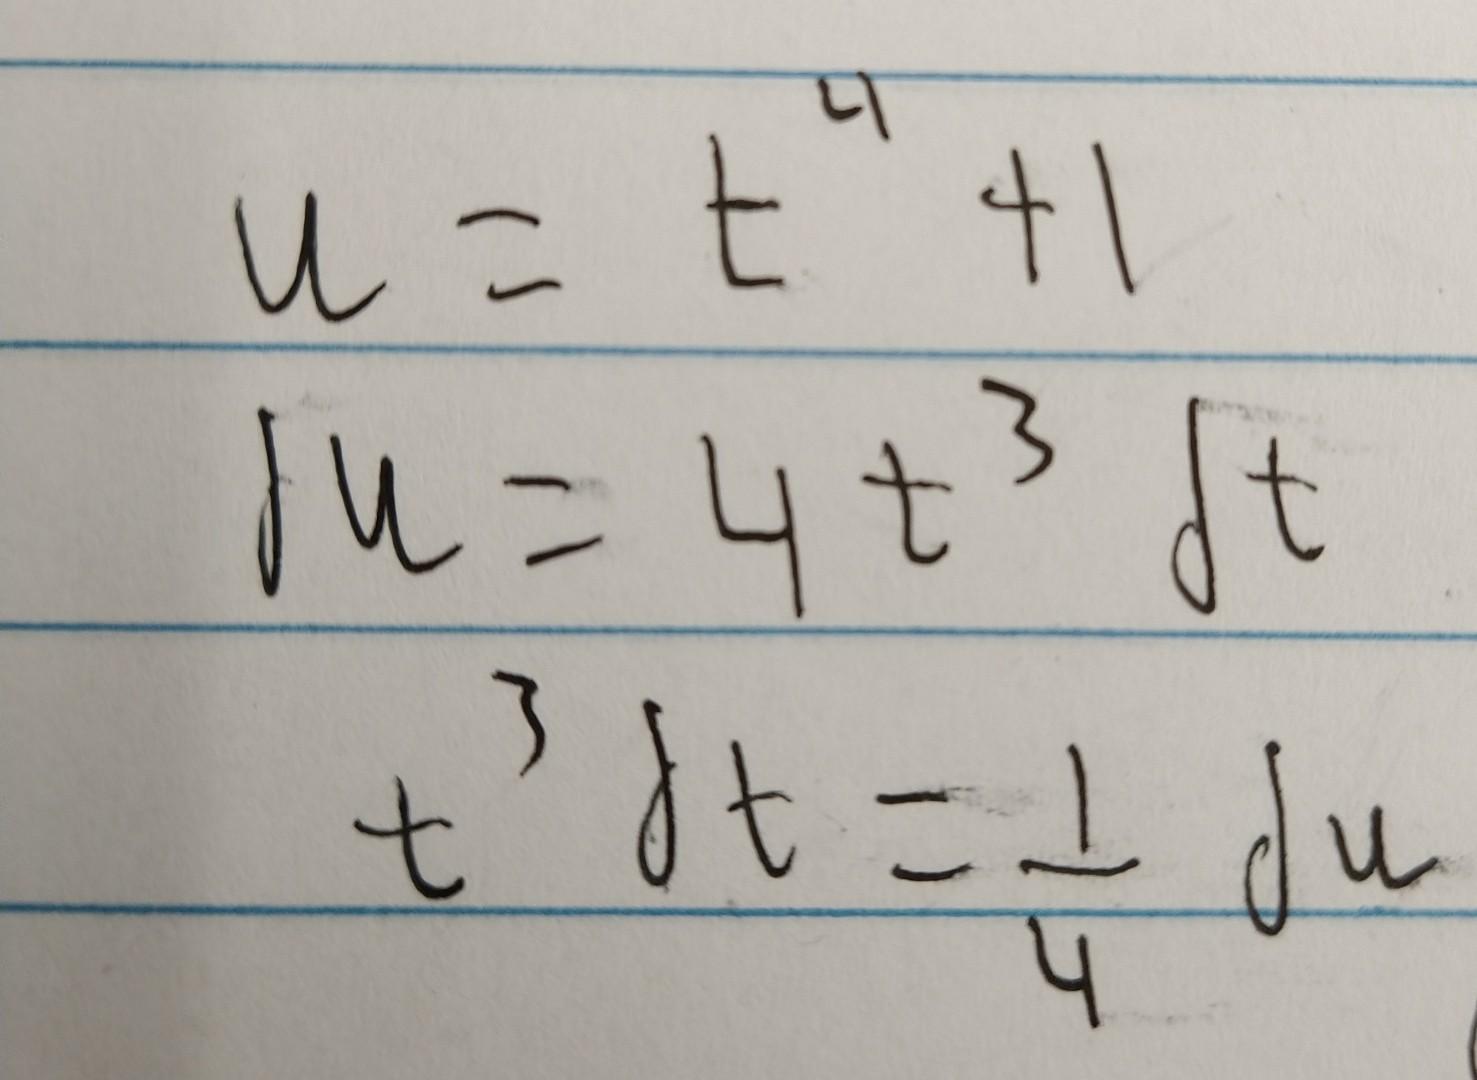 u = t⁴ + 1
du = 4t³ dt
t³ dt = 1/4 du